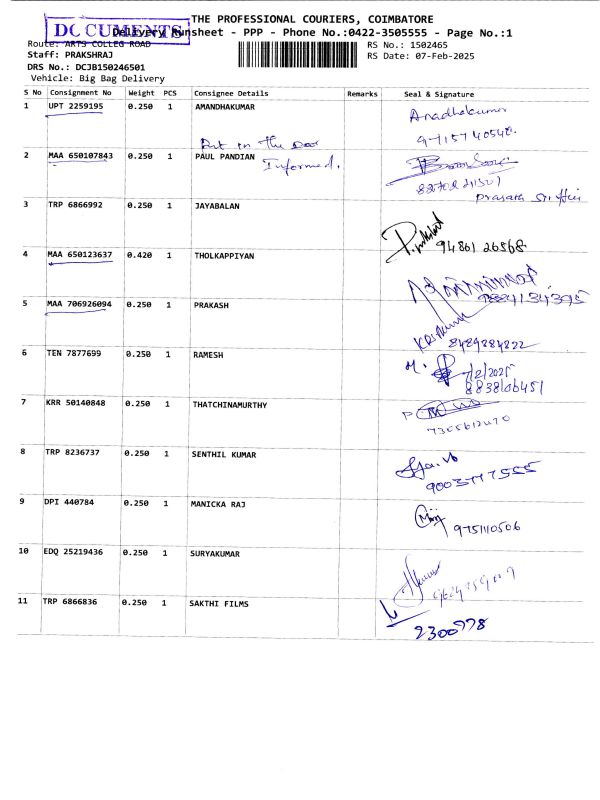 THE PROFESSIONAL COURIERS, COIMBATORE
DOCUMENTS
Delivery Runsheet - PPP - Phone No.:0422-3505555 - Page No.:1
Route: ARTS COLLEG ROAD
RS No.: 1502465
Staff: PRAKSHRAJ
RS Date: 07-Feb-2025
DRS No.: DCJB150246501
Vehicle: Big Bag Delivery
S No Consignment No Weight PCS Consignee Details Remarks Seal & Signature
1 UPT 2259195 0.250 1 AMANDHAKUMAR
Put in the Door
2 MAA 650107843 0.250 1 PAUL PANDIAN Informed.
3 TRP 6866992 0.250 1 JAYABALAN
94861 26868
4 MAA 650123637 0.420 1 THOLKAPPIYAN
5 MAA 706926094 0.250 1 PRAKASH
8489284222
6 TEN 7877699 0.250 1 RAMESH
7/2/2025
7 KRR 50140848 0.250 1 THATCHINAMURTHY
8 TRP 8236737 0.250 1 SENTHIL KUMAR
9 DPI 440784 0.250 1 MANICKA RAJ
9751110506
10 EDQ 25219436 0.250 1 SURYAKUMAR
11 TRP 6866836 0.250 1 SAKTHI FILMS
2300778